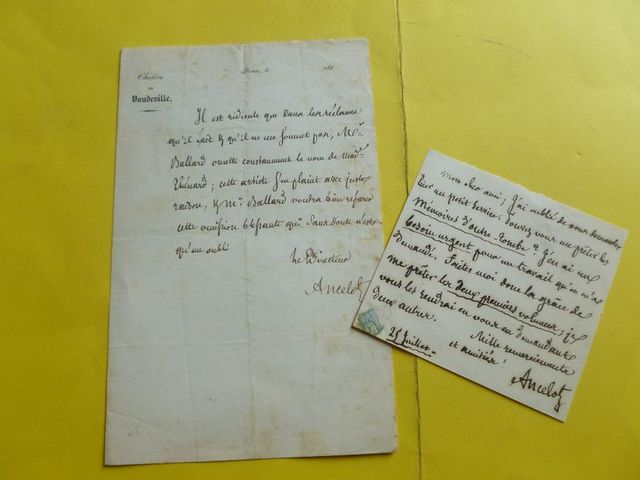 Théâtre
DU
Vaudeville.
Paris, le 184
Il est ridicule que dans les réclames
qu'il fait & qu'il ne me soumet pas, Mr
Ballard omette constamment le nom de Mad.
Thénard; cette artiste s'en plaint avec juste
raison, & Mr Ballard voudra bien réparer
cette omission blessante qui sans doute n'est
qu'un oubli
Le Directeur
Ancelot
mon cher ami; j'ai oublié de vous demander
hier un petit service. Pouvez vous me prêter les
Mémoires d'outre tombe? J'en ai un
besoin urgent pour un travail qu'on m'a
demandé. Faites moi donc la grâce de
me prêter les deux premiers volumes; je
vous les rendrai en vous en demandant
deux autres.
Mille remerciements
et amitiés!
25 Juillet.
Ancelot